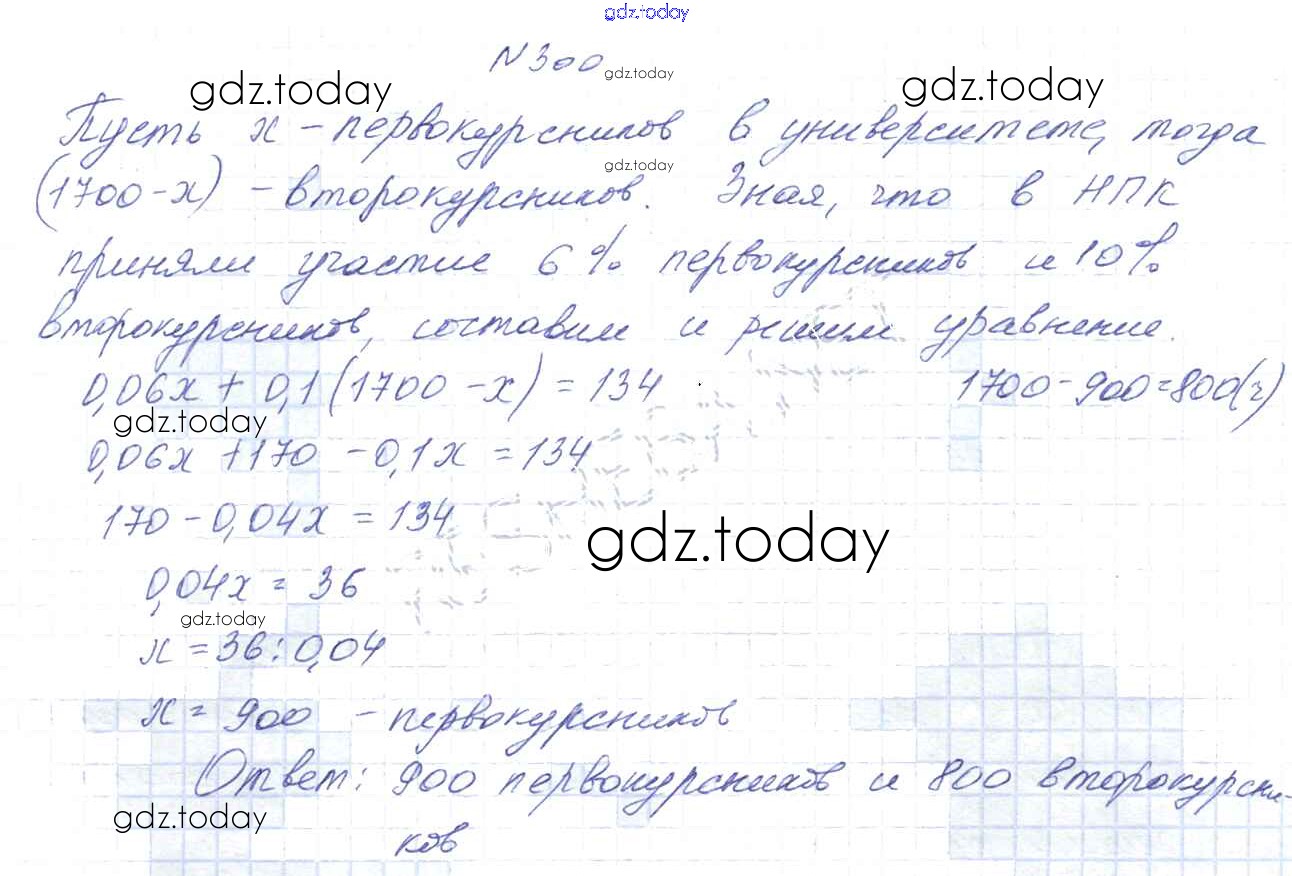 gdz.today
N 300
gdz.today
gdz.today
gdz.today
Пусть x – первокурсников в университете, тогда
gdz.today
(1700 – x) – второкурсников. Зная, что в НПК
приняли участие 6% первокурсников и 10%
второкурсников, составим и решим уравнение.
0,06x + 0,1(1700 – x) = 134
1700 - 900 = 800(ч)
gdz.today
0,06x + 170 – 0,1x = 134
170 – 0,04x = 134
gdz.today
0,04x = 36
gdz.today
x = 36 : 0,04
x = 900 – первокурсников
Ответ: 900 первокурсников и 800 второкурсни-
gdz.today
ков